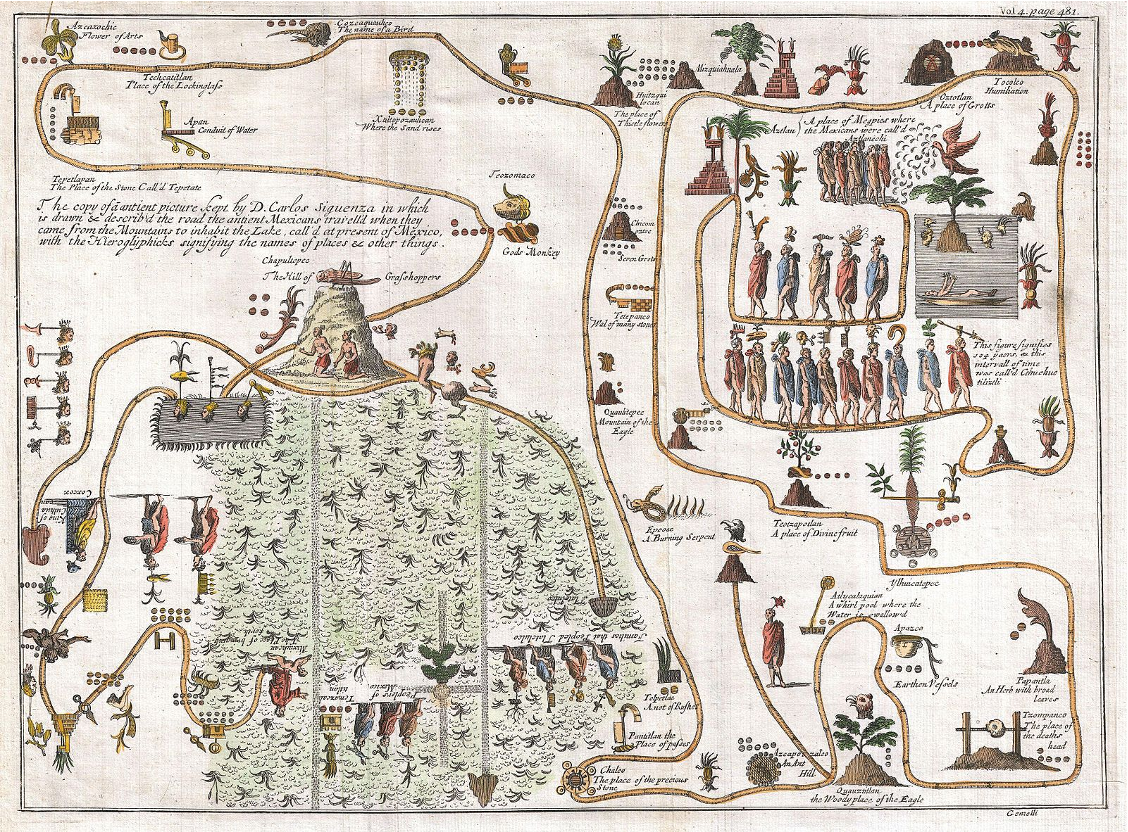 Vol 4. page 481.
Azcaxochic
Flower of Arts
Cozcaquauhco
The name of a Bird
Techcatitlan
Place of the Lockinglass
Apan
Conduit of Water
Xaltepozauhcan
Where the Sand rises
Tepetlapan
The Place of the Stone Call'd Tepetate
The copy of a antient picture kept by D. Carlos Siguenza in which
is drawn & describ'd the road the antient Mexicans travell'd when they
came from the Mountains to inhabit the Lake, call'd at present of Mexico,
with the Hieroglyphicks signifying the names of places & other things.
Teozomaco
Gods Monkey
Chapultepec
The Hill of Grasshoppers
Huitzqui
locan
The place of
Thistle flowers
Mizquiahuala
Oztotlan
A place of Grotts
Tocolco
Humiliation
Aztlan
A place of Megpies where
the Mexicans were call'd
Aztlanecki
Chicom
oztoc
Seven Grots
Tetepanco
Wal of many stone
Quauhtepec
Mountain of the
Eagle
This figure signifies
104 years, & this
intervall of time
was call'd
Epcoac
A Burning Serpent
Teotzapotlan
A place of Divine fruit
Ylhuicatepec
Atlycalaquian
A whirl pool where the
Water is swallow'd
Apazco
Earthen Vessels
Papantla
An Herb with broad
leaves
Tzompanco
The place of
the deaths
head
Azcapozalco
An Ant
Hill
Quauzitlan
the Woody place of the Eagle
Chalco
The place of the precious
Stone
Pantitlan the
Place of passes
Tolpetlac
A not of Rushes
Families that Peopled Tlatelulco
Peoplers of
Mexico
Culhua
King of
Coxcox
Gemelli